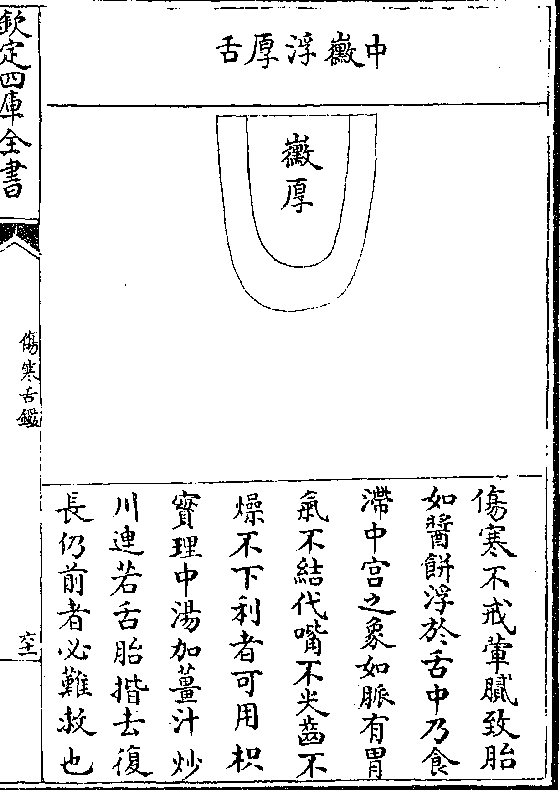 中黴浮厚舌
黴厚
傷寒不戒葷膩致胎
如醬餅浮於舌中乃食
滯中宫之象如脈有胃
氣不結代嘴不尖齒不
燥不下利者可用枳
實理中湯加薑汁炒
川連若舌胎揩去復
長仍前者必難救也
欽定四庫全書
傷寒舌鑑